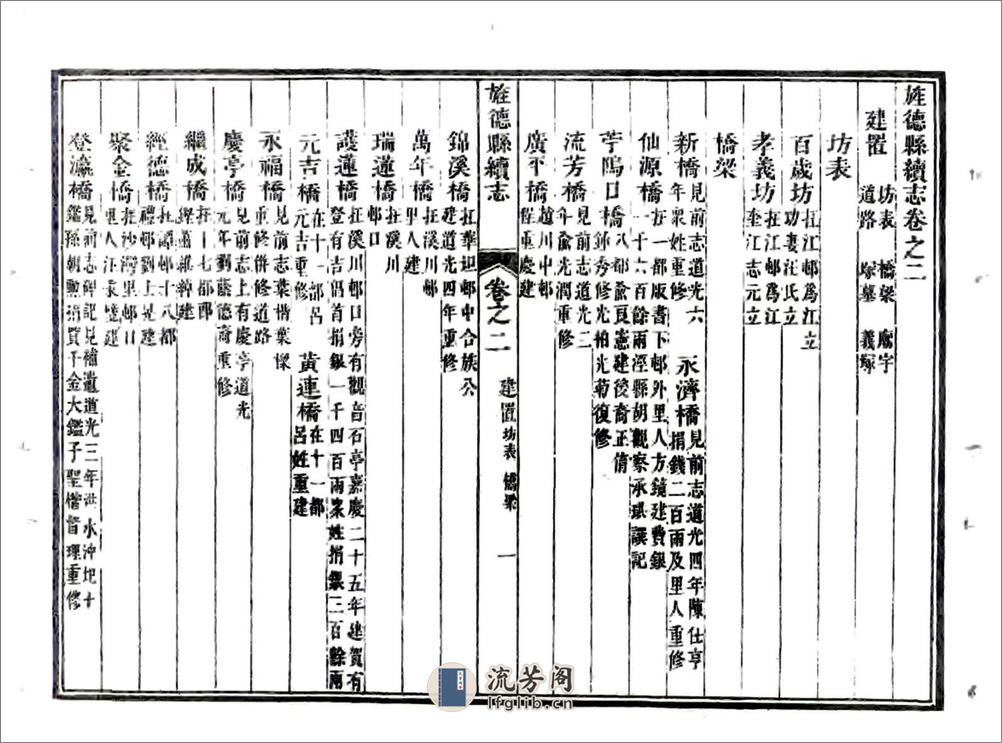 旌德縣續志卷之二
建置 坊表 橋梁 廟宇
道路 塚墓 義塚
坊表
百歲坊 在江邨爲江
功妻汪氏立
孝義坊 在江邨爲江
奎江志元立
橋梁
新橋 見前志道光六
年衆姓重修
永濟橋 見前志道光四年陳仕亨
捐錢二百兩及里人重修
仙源橋 在一都版書下邨外里人方鏡建費銀
一千六百餘兩涇縣胡觀察承珙譔記
苧隖口橋 八都兪良憲建後裔正倩
銾秀修光柏光菊復修
流芳橋 見前志道光二
年兪光潤重修
廣平橋 趙川中邨
程重慶建
旌德縣續志 卷之二 建置 坊表 橋梁 一
錦溪橋 在華坦邨中合族公
建道光四年重修
萬年橋 在溪川邨
里人建
瑞蓮橋 在溪川
邨口
護蓮橋 在溪川邨口旁有觀音石亭嘉慶二十五年建賀有
登有吉倡首捐銀一千四百兩衆姓捐銀二百餘兩
元吉橋 在十一都呂
元吉重修
黃連橋 在十一都
呂姓重建
永福橋 見前志葉楷葉樑
重修併修道路
慶亭橋 見前志上有慶亭道光
元年劉蔭德裔重修
繼成橋 在十七都郎
經德橋 在譚邨十八都
禮邨劉上晃建
聚金橋 在沙灣里邨口
里人汪承憶建
登瀛橋 見前志碑記見補遺道光三年洪水沖圮十
鑑孫朝勲捐貲千金大鑑子聖楷督理重修
流芳阁
lfglib.cn